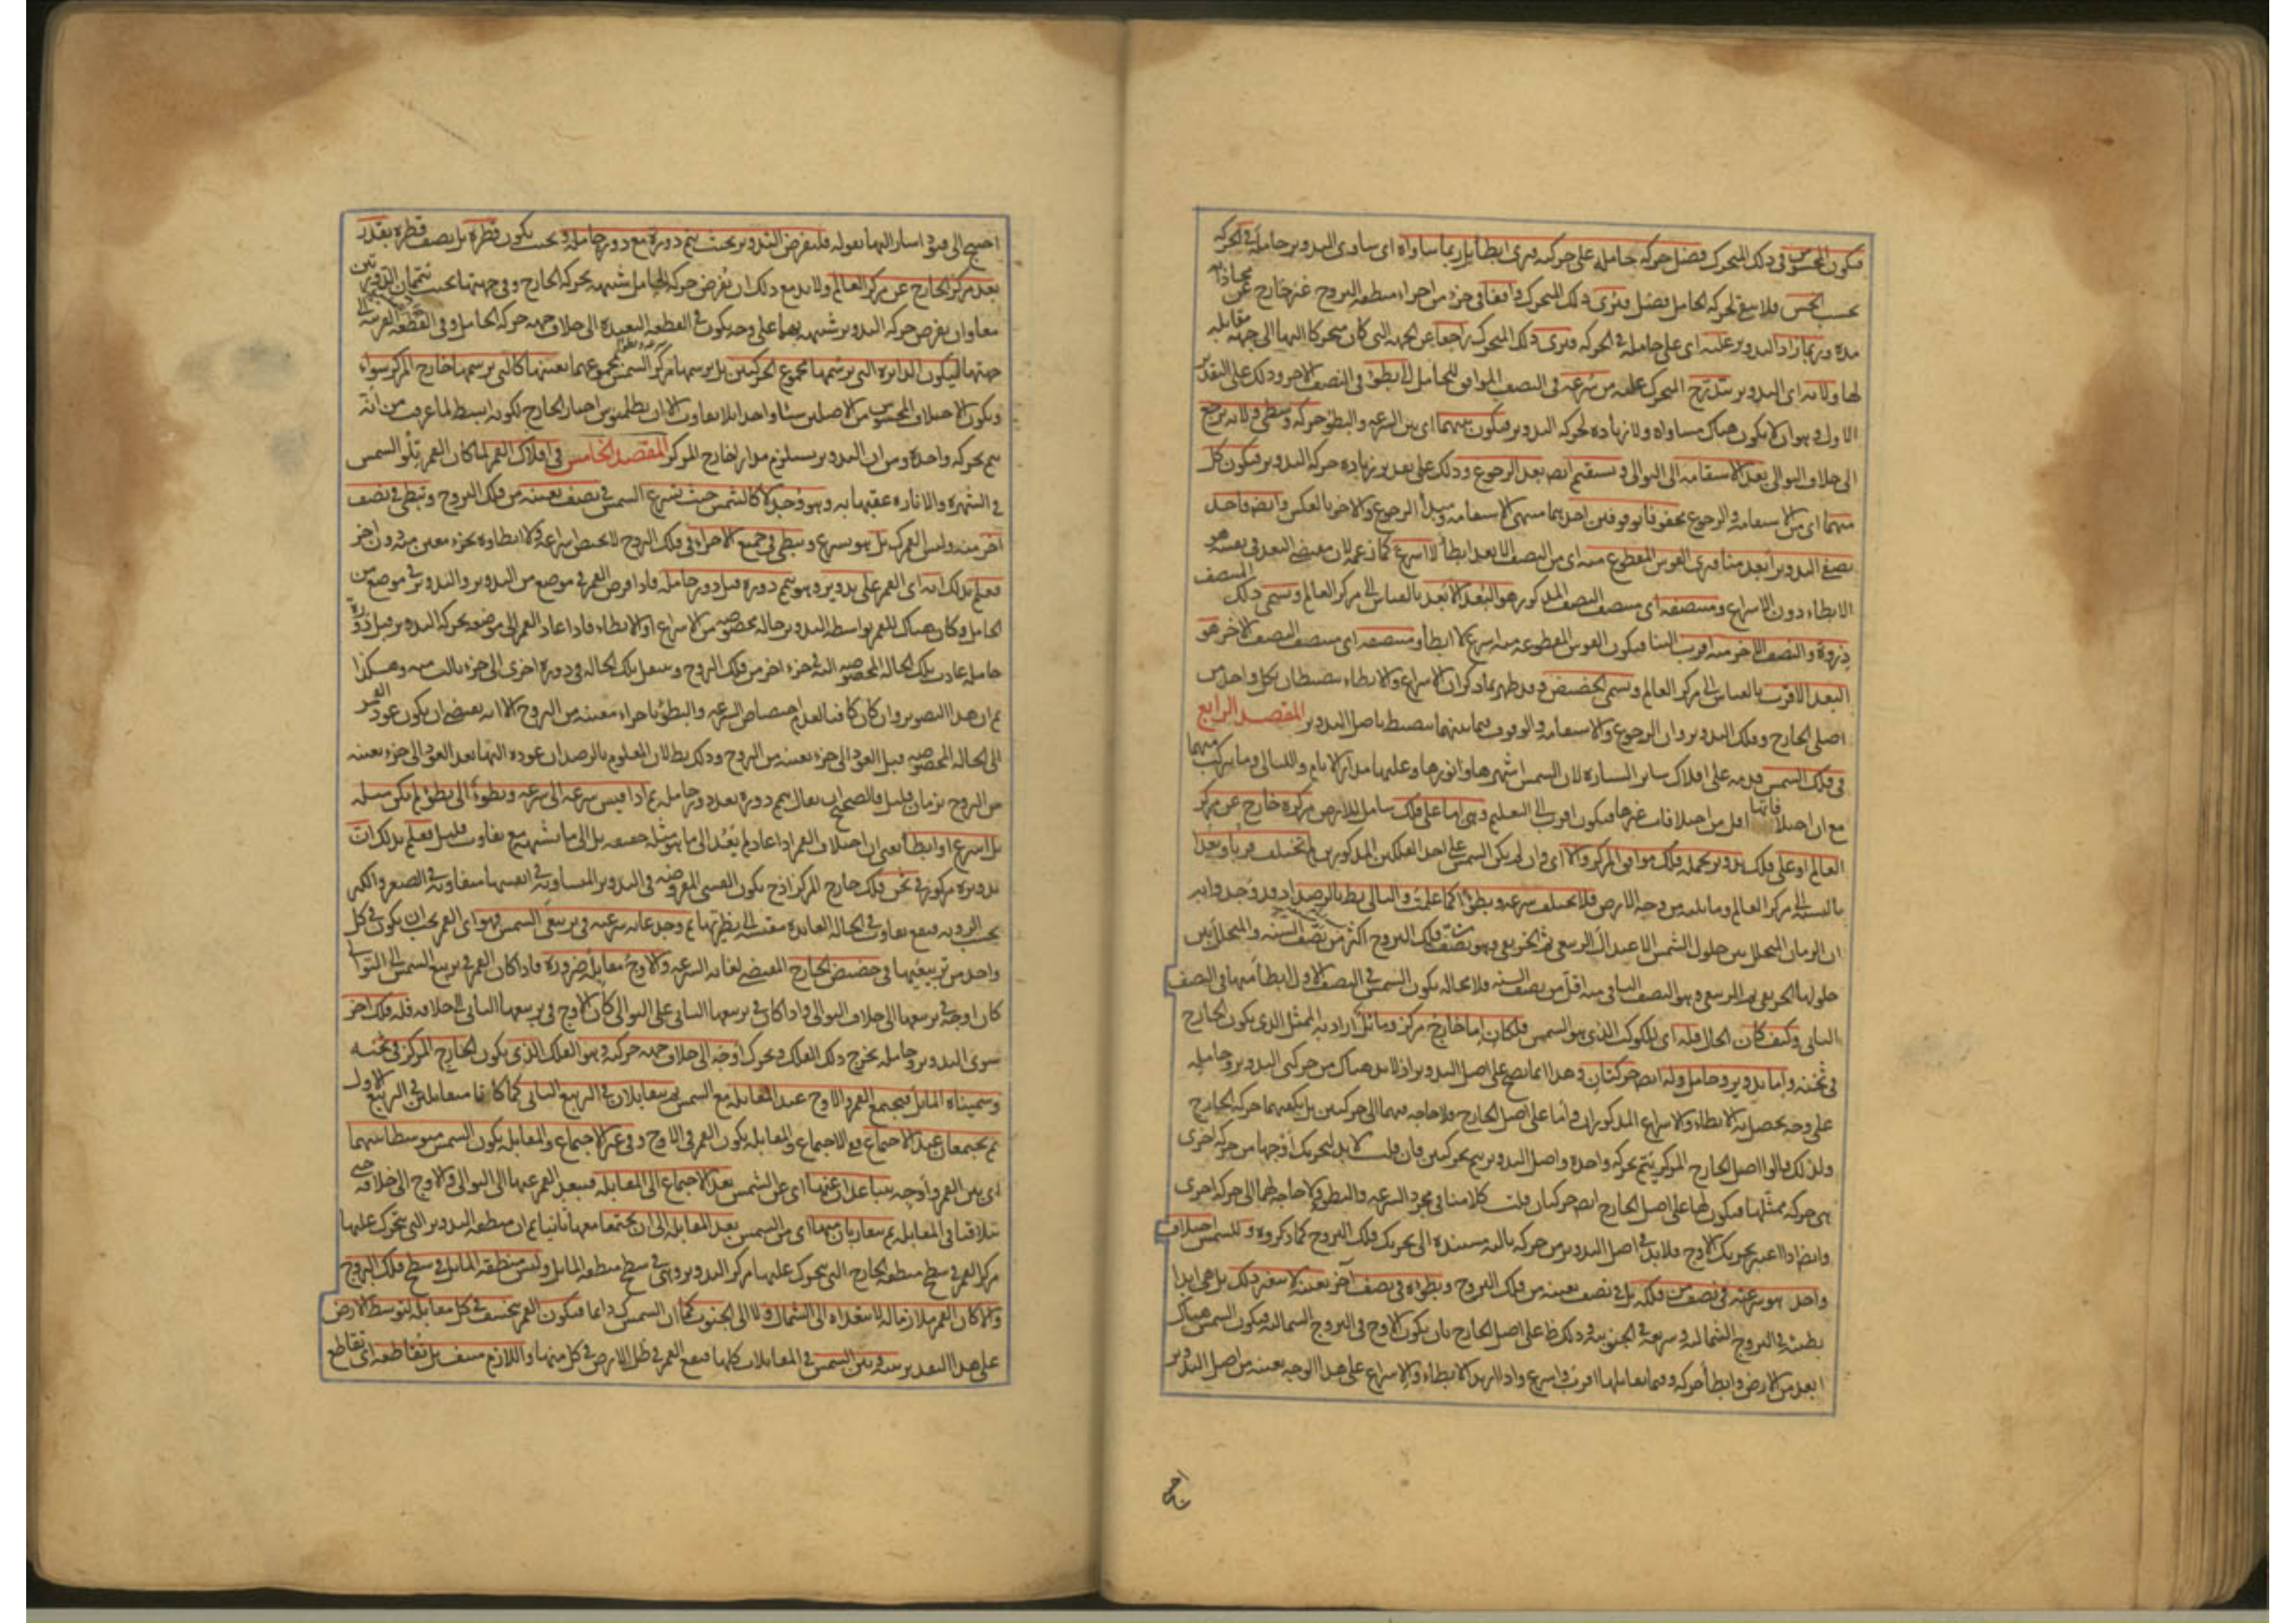 فيكون المحسوس في ذلك المتحرك فضل حركة حامله على حركته فيرى ابطأ بل ربما ساواه اى ساوى التدوير حامله في الحركة
بحسب الحس فلا يبقى لحركة الحامل فضل فيرى ذلك المتحرك واقفا في جزء من اجزاء منطقة البروج غير خارج عن محاذاته
مدة وربما زاد التدوير عليه اى على حامله في الحركة فيرى ذلك المتحرك راجعا عن الجهة التي كان متحركا اليها الى جهة مقابلة
لها ولانه اى التدوير يتدرج المتحرك عليه من سرعة في النصف الموافق للحامل الى بطؤ في النصف الاخر وذلك على التقدير
الاول وهو ان لا يكون هناك مساواة ولا زيادة لحركة التدوير فيكون بينهما اى بين السرعة والبطؤ حركة وسطى ولانه يرجع
الى خلاف التوالى بعد الاستقامة الى التوالى ويستقيم ايضا بعد الرجوع وذلك على تقدير زيادة حركة التدوير فيكون كل
منهما اى من الاستقامة والرجوع محفوفا بوقوفين احدهما منتهى الاستقامة ومبدأ الرجوع والاخر بالعكس وايضا فاحد
نصفي التدوير ابعد منا فيرى القوس المقطوع منه اى من النصف الابعد ابطأ لا اسرع كما زعمه لان مقتضى البعد في نفسه هو
الابطاء دون الاسراع ومنتصفه اى منتصف النصف المذكور هو البعد الابعد بالقياس الى مركز العالم ويسمى ذلك المنتصف
ذروة والنصف الاخر منه اقرب الينا فيكون القوس المقطوعة منه اسرع لا ابطأ ومنتصفه اى منتصف النصف الاخر هو
البعد الاقرب بالقياس الى مركز العالم ويسمى الحضيض وقد ظهر بما ذكر ان الاسراع والابطاء ينضبطان بكل واحد من
اصلى الخارج وفلك التدوير وان الرجوع والاستقامة والوقوف فيما بينهما ينضبط باصل التدوير المقصد الرابع
في فلك الشمس قدمه على افلاك سائر السيارة لان الشمس اشهرها وانورها وعليها مدار الايام والليالى وما يتركب منهما
مع ان اختلافاتها اقل من اختلافات غيرها فيكون اقرب الى التعليم وهى اما على فلك شامل للارض مركزه خارج عن مركز
العالم او على فلك تدوير يحمله فلك موافق المركز والا اى وان لم يكن الشمس على احد الفلكين المذكورين لم تختلف قربا وبعدا
بالنسبة الى مركز العالم وما يليه من وجه الارض فلا يختلف سرعة وبطؤا كما علمت والتالى بط بالرصد اذ قد وجد وا
ان الزمان المتخلل بين حلول الشمس الاعتدال الربيعى ثم الخريفى وهو نصف فلك البروج اكثر من نصف السنة والمتخلل بين
حلولها الخريفى ثم الربيعى وهو النصف الثانى منه اقل من نصف السنة فلا محالة يكون الشمس في النصف الاول ابطأ منها في النصف
الثانى وكيف كان الحال فله اى للكوكب الذى هو الشمس فلكان اما خارج مركز وماثل اراد به الممثل الذى يكون الخارج
في ثخنه واما تدوير وحامل وله ايضا حركتان وهذا انما يصح على اصل التدوير اذ لابد هناك من حركتى التدوير وحامله
على وجه يحصل به الابطاء والاسراع المذكوران واما على اصل الخارج فلا حاجة فيهما الى حركتين بل يكفيهما حركة الخارج
ولذلك قالوا اصل الخارج المركز يتم بحركة واحدة واصل التدوير يتم بحركتين فان قلت لابد لتحريك اوجها من حركة اخرى
هى حركة ممثلها فيكون لها على اصل الخارج ايضا حركتان قلت كلامنا في مجرد السرعة والبطؤ ولا حاجة لهما الى حركة اخرى
وايضا اذا اعتبر تحريك الاوج فلابد في اصل التدوير من حركة ثالثة مستندة الى تحريك فلك البروج كما ذكروه وللشمس اختلاف
واحد هو سرعته في نصف من فلكه بل في نصف بعينه من فلك البروج وبطؤه في نصف آخر بعينه لا يتغير ذلك بل هى ابدا
بطيئة في البروج الشمالية وسريعة في الجنوبية وذلك ظ على اصل الخارج بان يكون الاوج في البروج الشمالية فيكون الشمس هناك
ابعد من الارض وابطأ حركة وفيما يقابلها اقرب واسرع واذا اريد الابطاء والاسراع على هذا الوجه بعينه من اصل التدوير
احتيج الى قيود اشار اليها بقوله فليفرض التدوير بحيث يتم دورة مع دور حامله وبحيث يكون قطره بل نصف قطره بقدر
بعد مركز الخارج عن مركز العالم ولابد مع ذلك ان يفرض حركة الحامل شبيهة بحركة الخارج وفي جهتها بحيث يتممان الدورتين
معا وان يفرض حركة التدوير شبيهة بها على وجه يكون في القطعة البعيدة الى خلاف جهة حركة الحامل وفي القطعة القريبة الى
جهتها ليكون الدائرة التى يرسمها مجموع الحركتين بل يرسمها مركز الشمس بمجموعهما بعينها كالتى يرسمها خارج المركز سواء
ويكون الاختلاف المحسوس من الاصلين شيئا واحدا بلا تفاوت الا ان بطلميوس اختار الخارج لكونه ابسط لما عرفت من انه
يتم بحركة واحدة ومن ان التدوير يستلزم مدارا خارج المركز المقصد الخامس في افلاك القمر لما كان القمر يتلو الشمس
في الشهرة والانارة عقبها به وهو وجد لا كالشمس حيث يسرع الشمس في نصف بعينه من فلك البروج وتبطى في نصف
آخر منه وليس القمر كذلك بل هو يسرع ويبطى في جميع الاجزاء في فلك البروج لا يختص اسراعه ولا ابطاؤه بجزء معين منه دون آخر
فعلم بذلك انه اى القمر على تدوير وهو يتم دورة قبل دور حامله فاذا فرض القمر في موضع من التدوير والتدوير في موضع من
الحامل وكان هناك للقمر بواسطة التدوير حالة مخصوصة من الاسراع او الابطاء فاذا عاد القمر الى موضعه بحركة التدوير قبل دورة
حامله عادت تلك الحالة المخصوصة اليه في جزء اخر من فلك البروج وينتقل تلك الحالة في دورة اخرى الى جزء ثالث منه وهكذا
ثم ان هذا التصوير وان كان كافيا لعدم اختصاص السرعة والبطؤ باجزاء معينة من البروج الا انه يقتضى ان يكون عود القمر
الى الحالة المخصوصة قبل العود الى جزء بعينه من البروج وذلك بط لان المعلوم بالرصد ان عوده اليها بعد العود الى جزء بعينه
من البروج بزمان قليل فالصحيح ان يقال يتم دورة بعد دور حامله ثم اذا قيس سرعة الى سرعة وبطؤ الى بطؤ لم يكن مثله
بل اسرع او ابطأ يعنى ان اختلاف القمر اذا عاد لم يعد الى ما هو مثله حقيقة بل الى ما يشبهه مع تفاوت قليل فعلم بذلك ان
تدويره مركوز في ثخن فلك خارج المركز اذ ح يكون القسى المفروضة في التدوير المتساوية في انفسها متفاوتة في الصغر والكبر
بحسب الرؤية فيقع تفاوت في الحالة العائدة مقيسة الى نظيرتها ثم وجد غاية سرعته في تربيعى الشمس فهو اى القمر يجب ان يكون في كل
واحد من تربيعيها في حضيض الخارج المقتضى لغاية السرعة والاوج مقابله ضرورة فاذا كان القمر في تربيع الشمس الى التوالى
كان اوجه في تربيعها الى خلاف التوالى واذا كان في تربيعها الثانى على التوالى كان الاوج في تربيعها الثانى الى خلافه فله فلك اخر
سوى التدوير وحامله يخرج ذلك الفلك ويحرك اوجه الى خلاف جهة حركته وهو الفلك الذى يكون الخارج المركز في ثخنه
وسميناه المائل فيجتمع القمر والاوج عند المقابلة مع الشمس ثم يتقابلان في الربيع الثانى كما كانا متقابلين في الربيع الاول
ثم يجتمعان عند الاجتماع ففي الاجتماع والمقابلة يكون القمر في الاوج وفي غير الاجتماع والمقابلة يكون الشمس متوسطا بينهما
اى بين القمر واوجه يتباعدان عنها اى عن الشمس بعد الاجتماع الى المقابلة فيبعد القمر عنها الى التوالى والاوج الى خلافه حتى
يتلاقيا في المقابلة ثم يتقاربان منها اى من الشمس بعد المقابلة الى ان يجتمعا معها ثانيا ثم ان منطقة التدوير التى يتحرك عليها
مركز القمر في سطح منطقة الخارج التى يتحرك عليها مركز التدوير وهى في سطح منطقة المائل وليس منطقة المائل في سطح فلك البروج
والا كان القمر ملازما له لا يتعداه الى الشمال ولا الى الجنوب كما ان الشمس كذلك دائما فيكون القمر ينخسف في كل مقابلة لتوسط الارض
على هذا التقدير بينه وبين الشمس في المقابلات كلها فيقع القمر في ظل الارض في كل منها واللازم منتف بل تقاطعه اى تقاطع